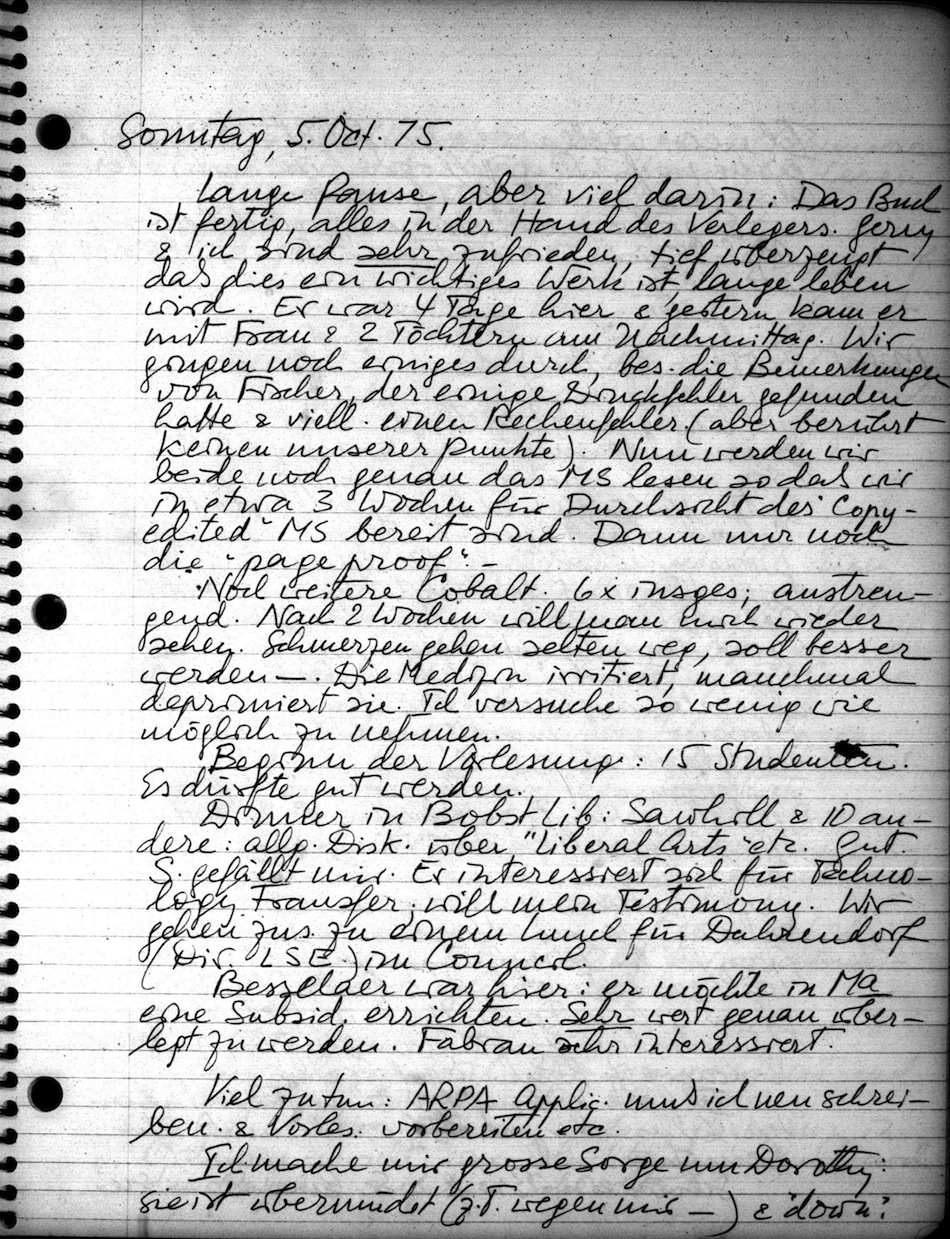 Sonntag, 5. Oct. 75.
Lange Pause, aber viel darin: Das Buch
ist fertig, alles in der Hand des Verlegers. Gerry
& ich sind sehr zufrieden, tief überzeugt
daß dies ein wichtiges Werk ist, lange leben
wird. Er war 4 Tage hier & gestern kam er
mit Frau & 2 Töchtern am Nachmittag. Wir
gingen noch einiges durch, bes. die Bemerkungen
von Fischer, der einige Druckfehler gefunden
hatte & viell. einen Rechenfehler (aber berührt
keinen unserer Punkte). Nun werden wir
beide noch genau das MS lesen so daß wir
in etwa 3 Wochen für Durchsicht des "Copy-
edited" MS bereit sind. Dann nur noch
die "page proof". –
Noch weitere Cobalt. 6x insges; anstren-
gend. Nach 2 Wochen will man mich wieder
sehen. Schmerzen gehen selten weg, soll besser
werden –. Die Medizin irritiert, manchmal
deprimiert sie. Ich versuche so wenig wie
möglich zu nehmen.
Beginn der Vorlesung: 15 Studenten.
Es dürfte gut werden.
Dinner in Bobst Lib: Sawhill & 10 an-
dere: allg. Disk. über "Liberal Arts" etc. Gut.
S. gefällt mir. Er interessiert sich für Techno-
logy Transfer, will mein Testimony. Wir
gehen zus. zu einem Lunch für Dahrendorf
(Dir. LSE.) im Council.
Besselaer war hier: er möchte in Ma
eine Subsid. errichten. Sehr wert genau über-
legt zu werden. Fabian sehr interessiert.
Viel zu tun: ARPA Applic. muß ich neu schrei-
ben. & Vorles. vorbereiten etc.
Ich mache mir grosse Sorge um Dorothy:
sie ist übermüdet (z.T. wegen mir –) & "down".